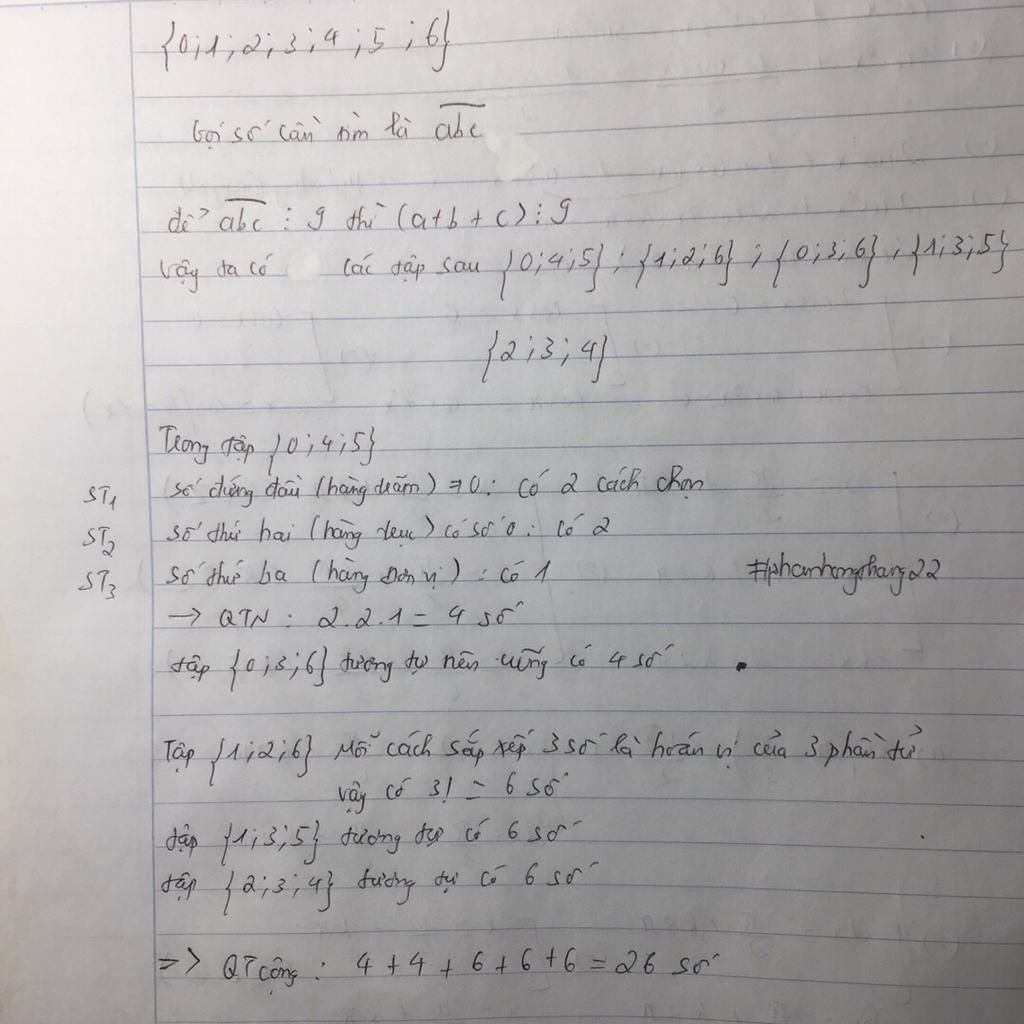 {0;1;2;3;4;5;6}
Gọi số cần tìm là abc
để abc ⋮ 9 thì (a+b+c) ⋮ 9
Vậy ta có các tập sau {0;4;5}; {1;2;6}; {0;3;6}; {1;3;5}
{2;3;4}
Trong tập {0;4;5}
ST1 số đứng đầu (hàng trăm) ≠ 0: có 2 cách chọn
ST2 số thứ hai (hàng chục) có số 0: có 2
ST3 số thứ ba (hàng đơn vị): có 1 #phanhongthang22
→ QTN: 2.2.1 = 4 số
tập {0;3;6} tương tự nên cũng có 4 số
Tập {1;2;6} Mỗi cách sắp xếp 3 số là hoán vị của 3 phần tử
vậy có 3! = 6 số
tập {1;3;5} tương tự có 6 số
tập {2;3;4} tương tự có 6 số
=> QT cộng: 4 + 4 + 6 + 6 + 6 = 26 số